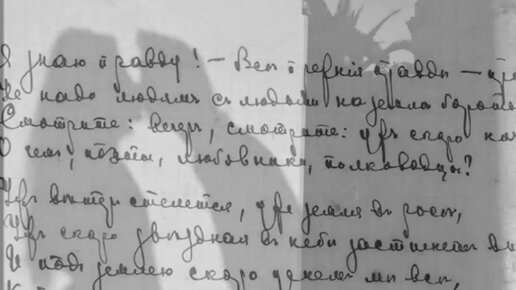 Я знаю правду! — Всѣ прежнія правды — пр
Не надо людямъ съ людьми на землѣ борот
Смотрите: вечеръ, смотрите: ужъ скоро но
О чемъ, поэты, любовники, полководцы?
Ужъ вѣтеръ стелется, уже земля въ росѣ,
Ужъ скоро звѣздная въ небѣ застынетъ вь
И подъ землею скоро уснемъ мы всѣ,